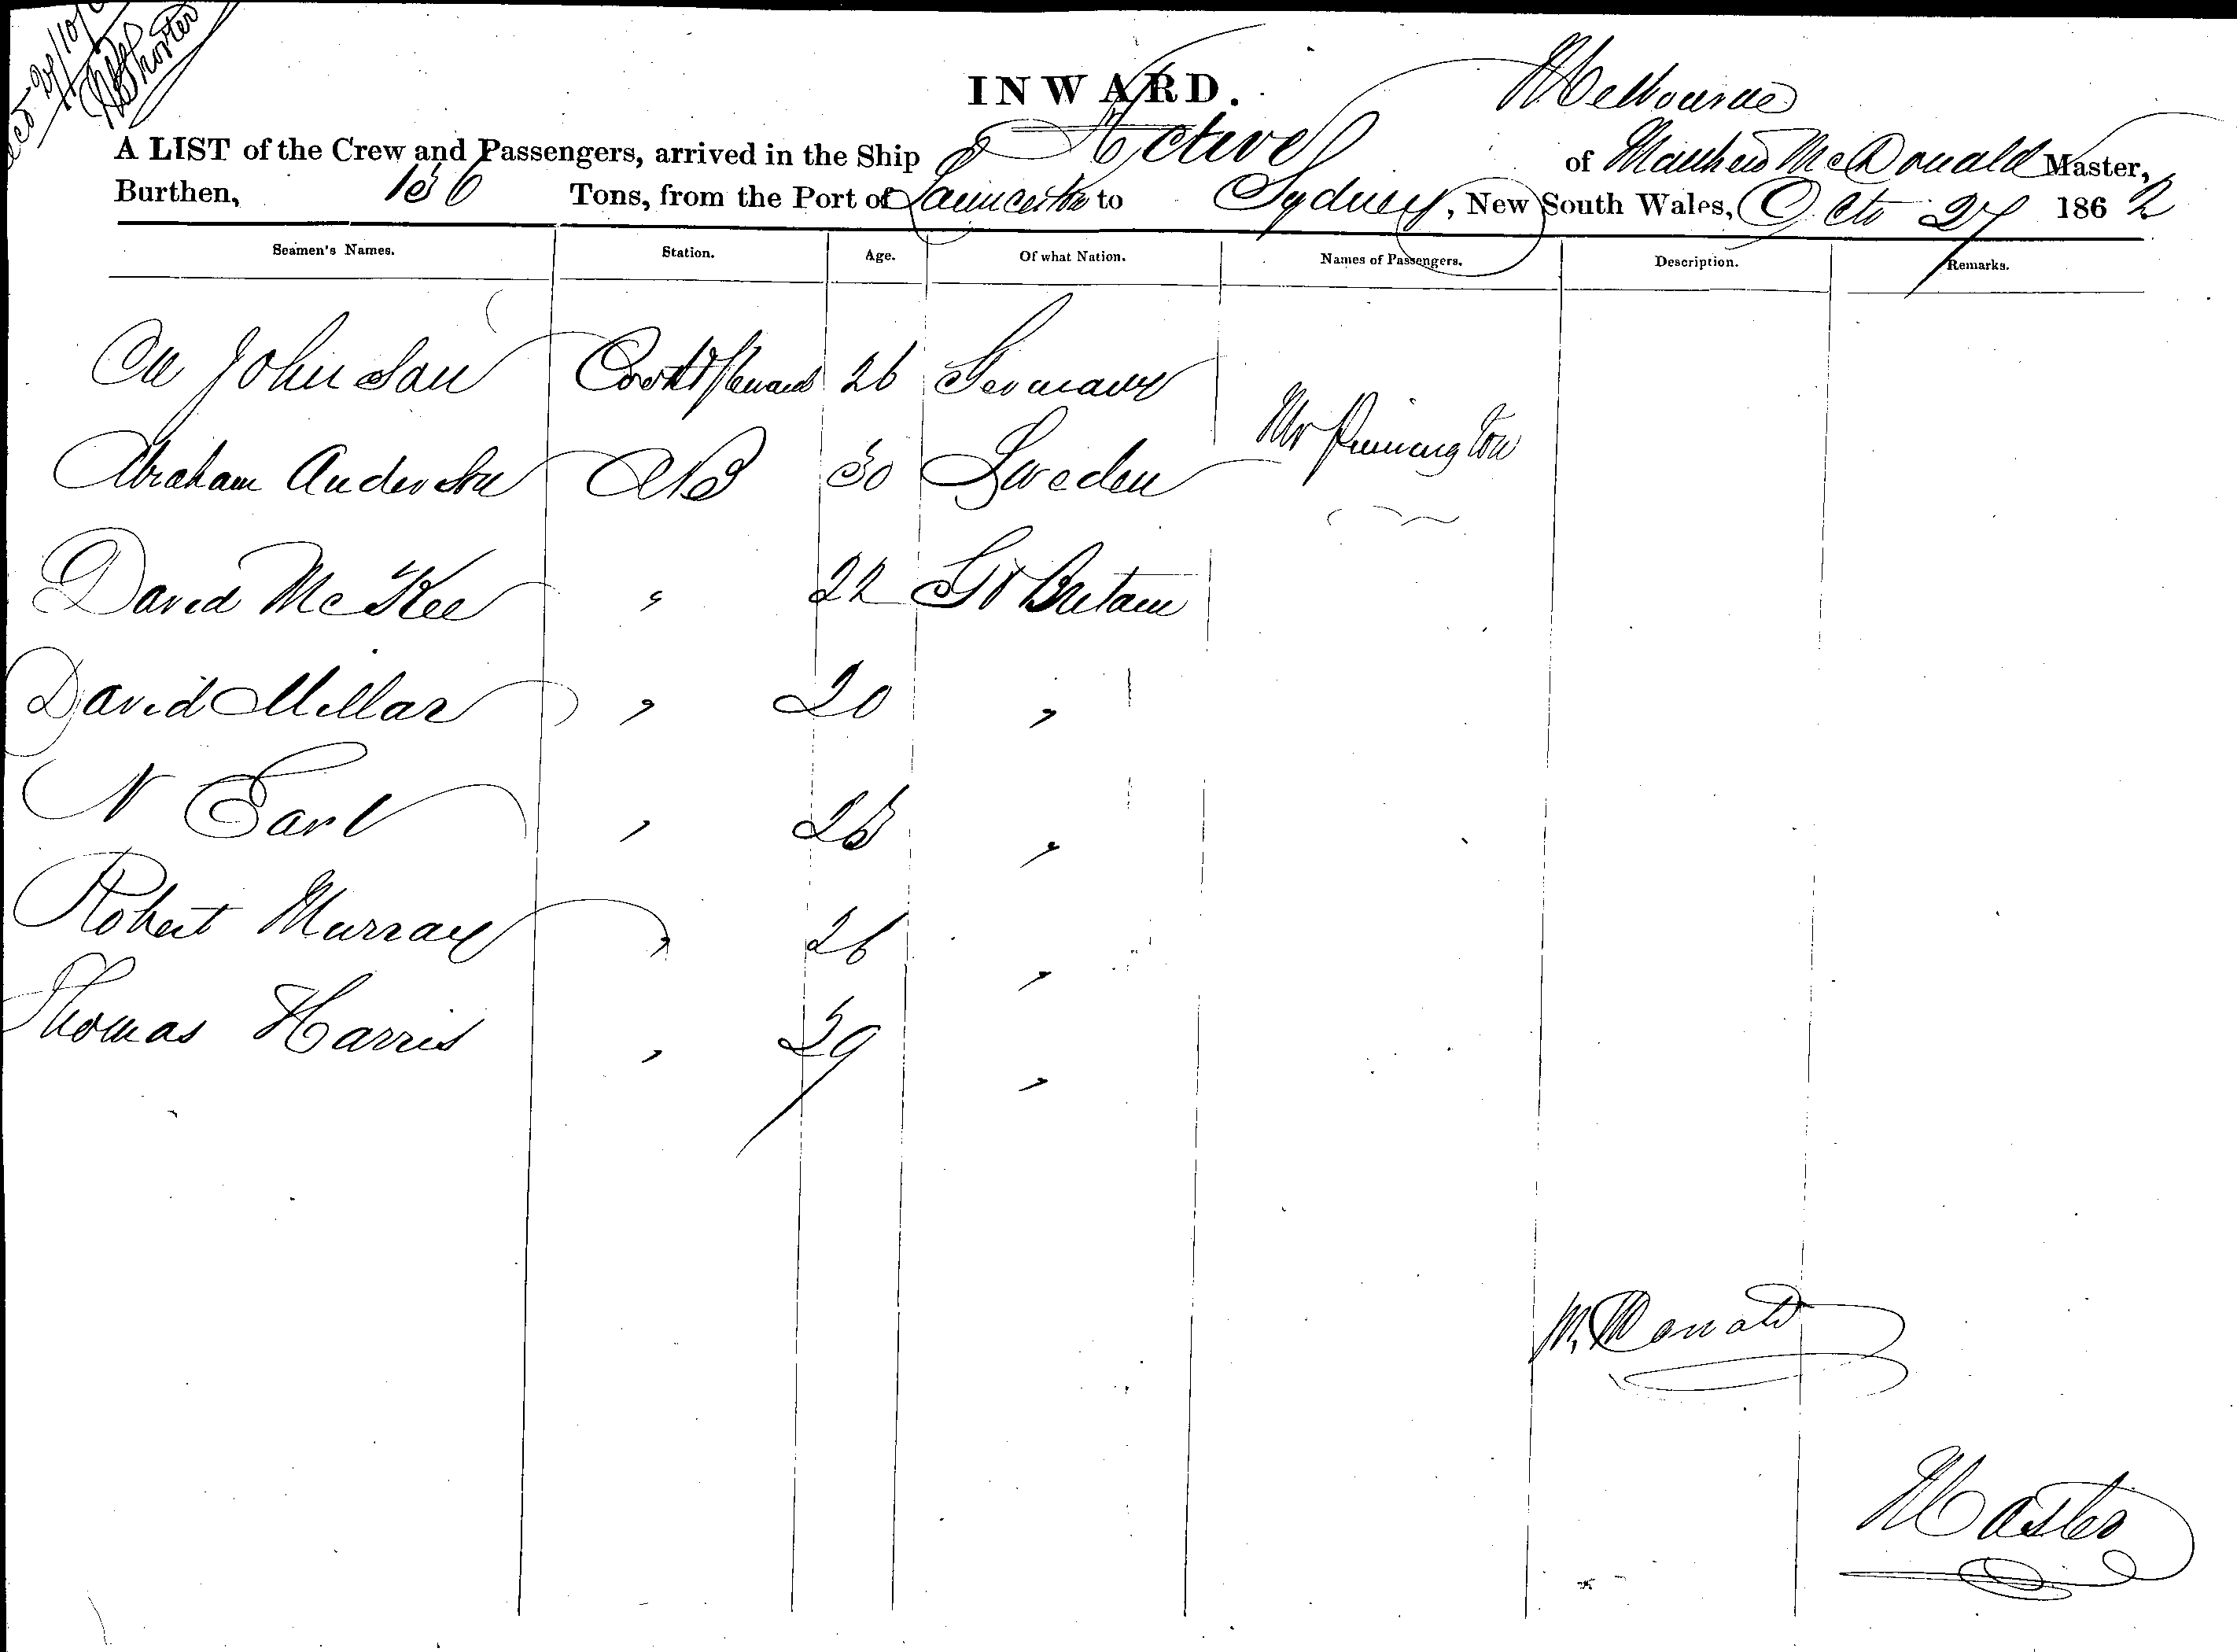 INWARD.
Melbourne
A LIST of the Crew and Passengers, arrived in the Ship Active of Matthew McDonald Master,
Burthen, 136 Tons, from the Port of Launceston to Sydney, New South Wales, Octo 27 1862
Seamen's Names. Station. Age. Of what Nation. Names of Passengers. Description. Remarks.
Ole Johnson Cook & Steward 26 Germany
Mr Pinnington
Abraham Anderson AB 30 Sweden
David McKee " 22 Gt Britain
David Millar " 20 "
N Earl "  "
Robert Murray " 26 "
Thomas Harris " 29 "
M McDonald
Master